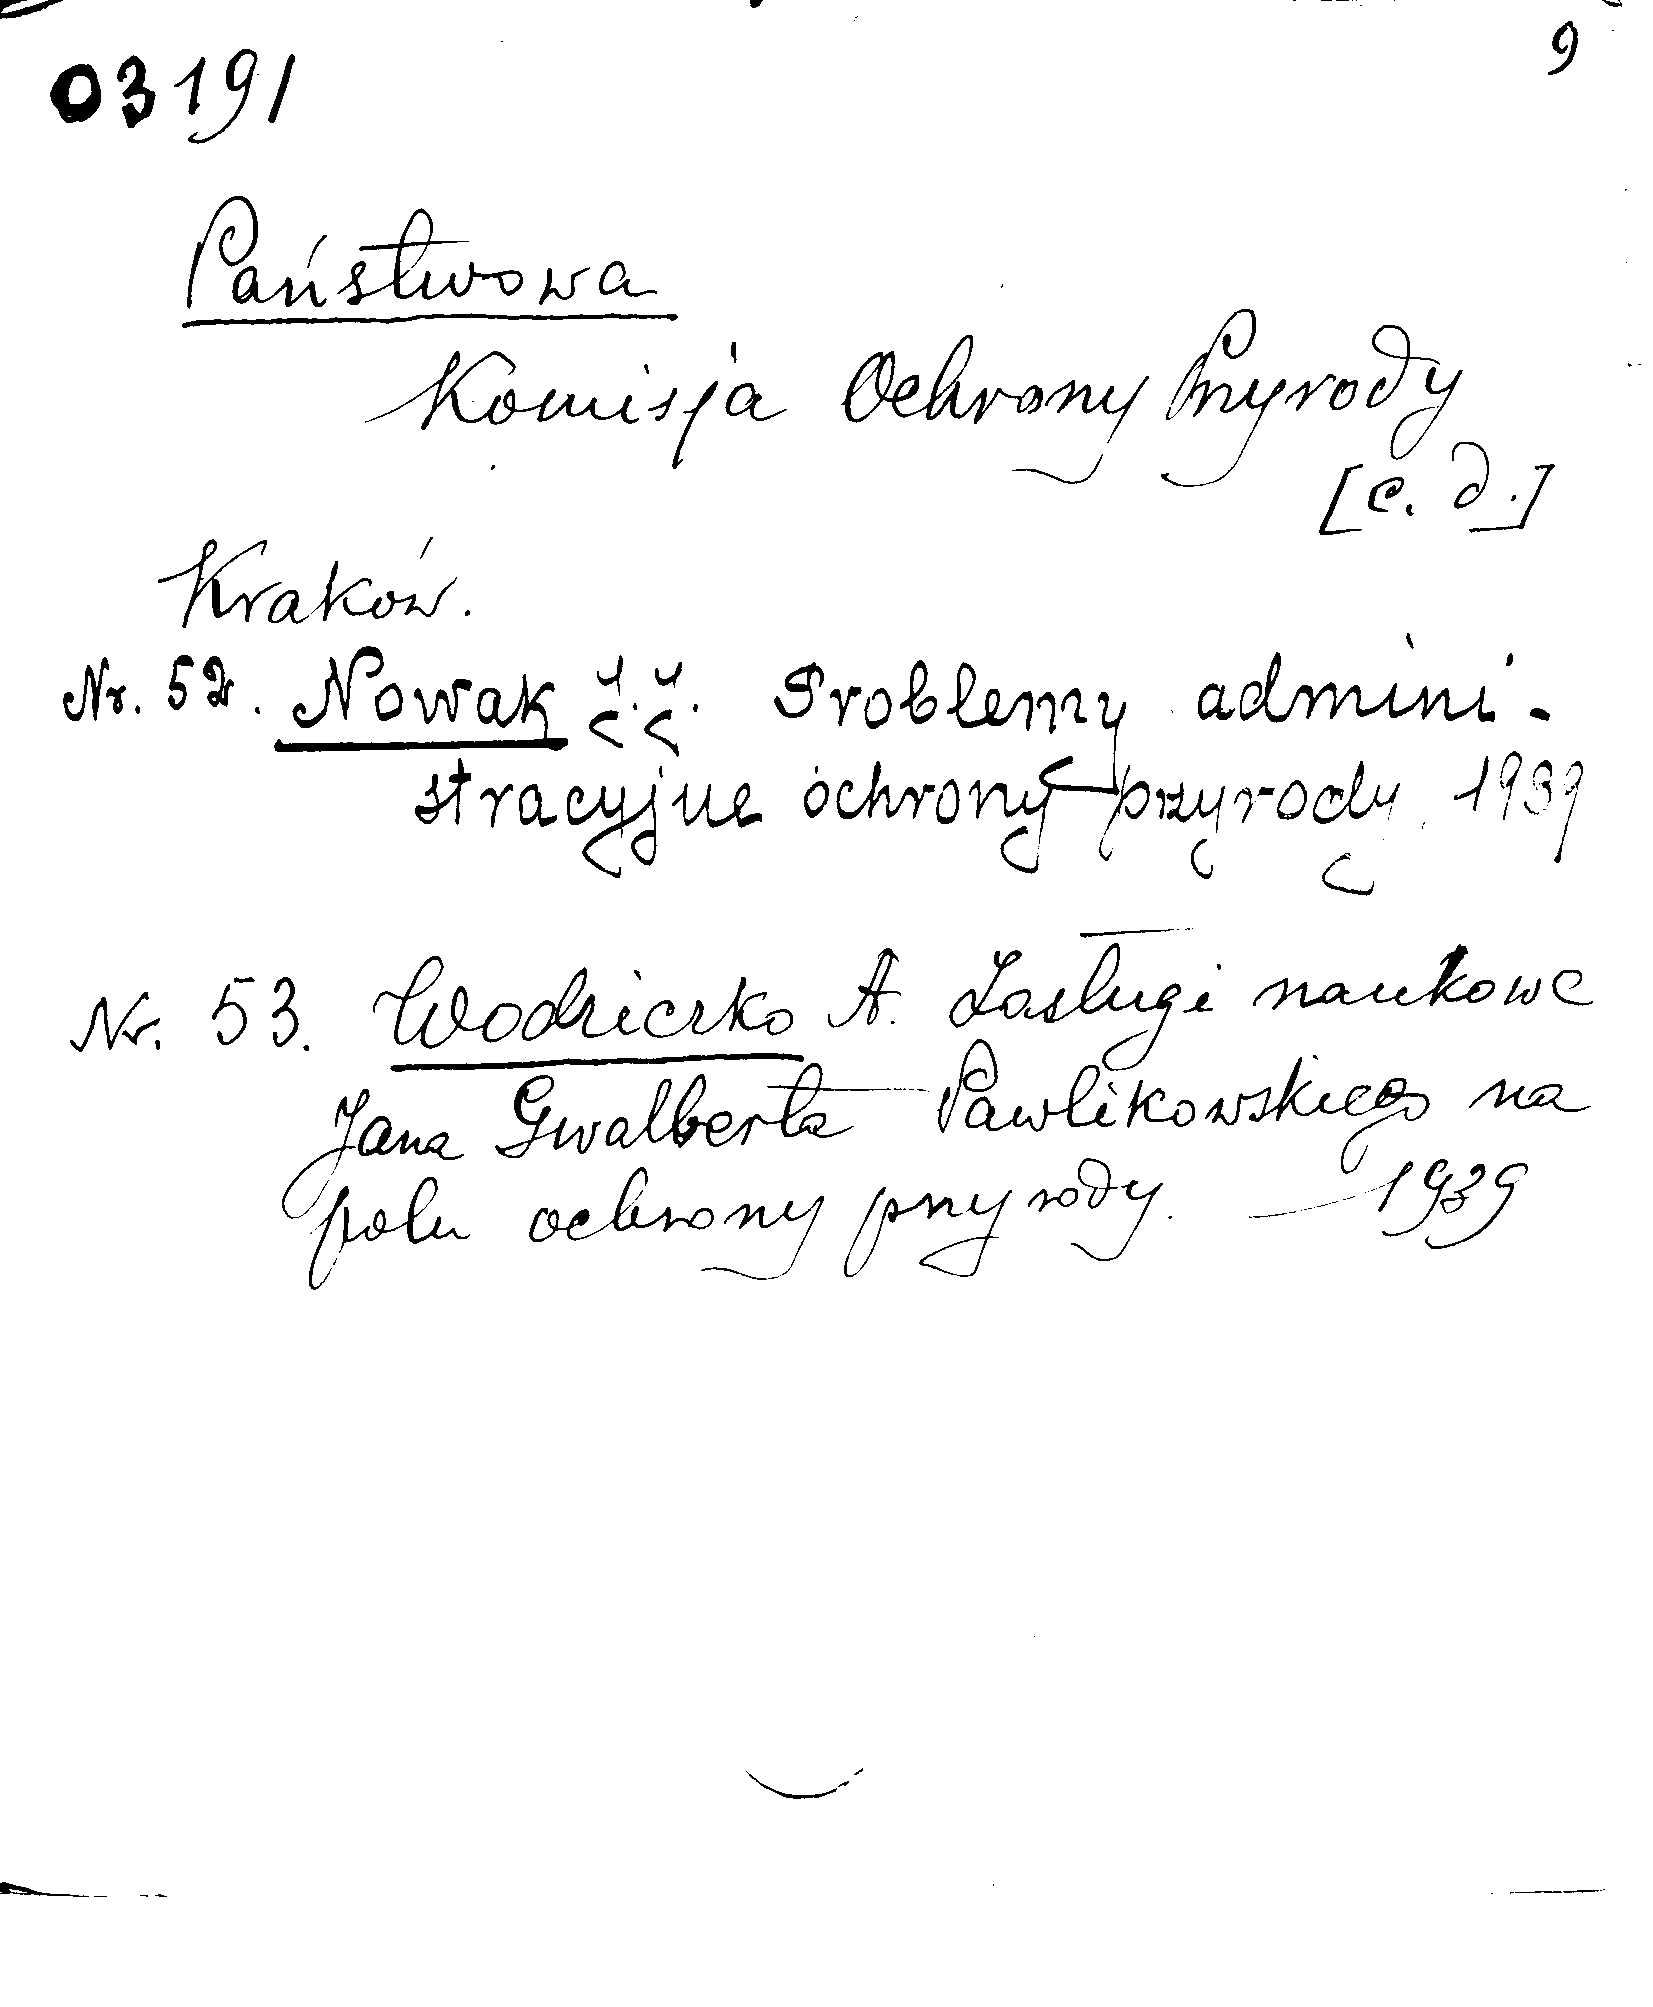 03191
9
Państwowa
Komisja Ochrony Przyrody
[c. d.]
Kraków.
Nr. 52. Nowak Problemy admini-
stracyjne ochrony przyrody 1939
Nr. 53. Wodziczko A. Zasługi naukowe
Jana Gwalberta Pawlikowskiego na
polu ochrony przyrody. 1939